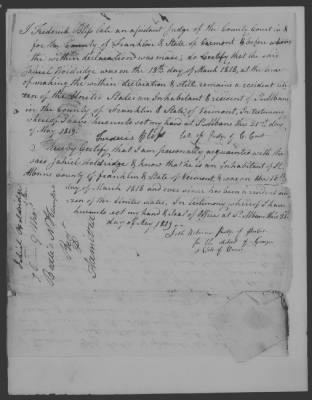 I Frederick Bliss late an assistant Judge of the County Court in &
for the County of Franklin & State of Vermont & before whom
the within declaration was made; do Certify that the said
Jahiel Holdridge was on the 18th day of March 1818, at the time
of making the within declaration & still remains a resident citi-
zen of the United States an Inhabitant & resident of St Albans
in the County of Franklin & State of Vermont, In testimony
whereof I have hereunto set my hand at St Albans this 25th day
of May 1819.
Frederic Bliss late Judge of C Court
I hereby Certify that I am personally acquainted with the
said Jahiel Holdridge & know that he is an Inhabitant of St
Albans County of Franklin & State of Vermont, & was on the 18th
day of March 1818 and ever since has been a resident citi-
zen of the United States. In testimony whereof I have
hereunto set my hand & Seal of Office at St Albans this
day of May 1819
Seth Judge of Probate
for the district of
& State of Vermont
Jahiel Holdridge